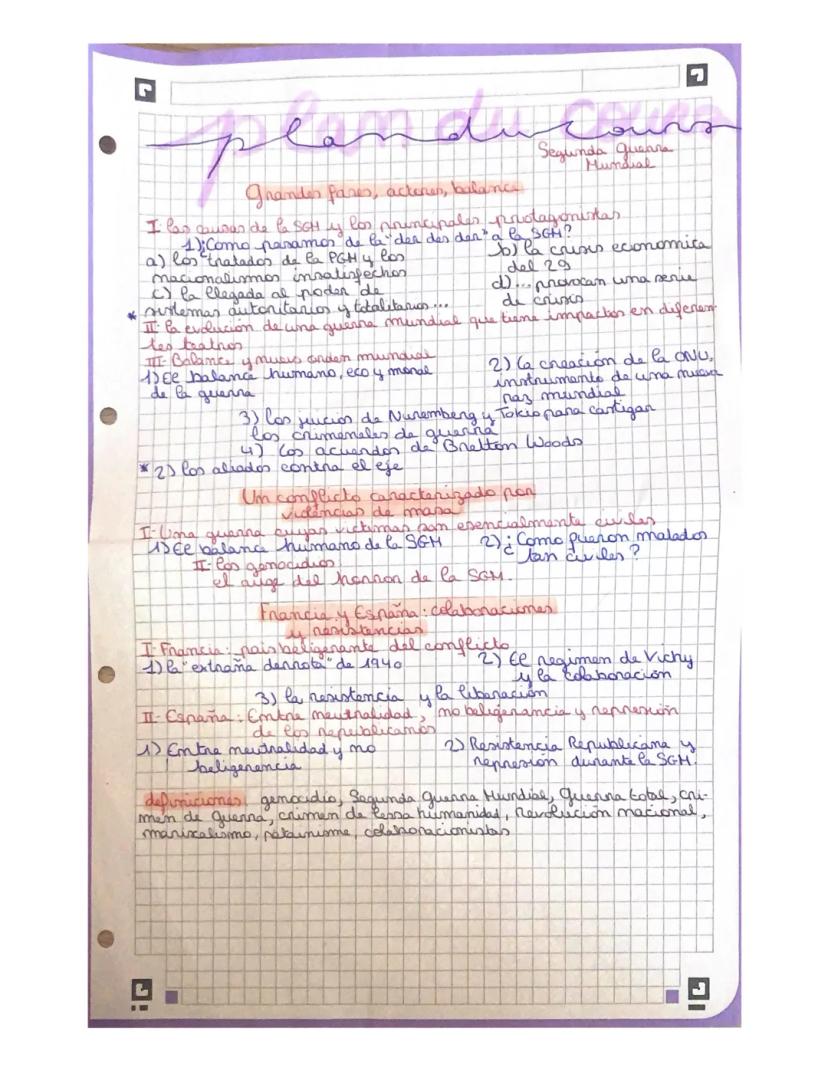 plan du cours
Segunda Guerra
Mundial
Grandes fases, actores, balance
I. las causas de la SGM y los principales protagonistas
1) ¿Como pasamos de la "der des der" a la SGM?
a) los tratados de la PGM y los
nacionalismos insatisfechos
b) la crisis economica
del 29
c) la llegada al poder de
* sistemas autoritarios y totalitarios...
d) ... provocan una serie
de crisis
II. la evolución de una guerra mundial que tiene impactos en diferen-
tes teatros
III. Balance y nuevo orden mundial
1) El balance humano, eco y moral
de la guerra
2) la creación de la ONU,
instrumento de una nueva
paz mundial
3) los juicios de Nuremberg y Tokio para castigar
los criminales de guerra
4) Los acuerdos de Bretton Woods
* 2) los aliados contra el eje
Un conflicto caracterizado por
violencias de masa
I- Una guerra cuyas victimas son esencialmente civiles
1) El balance humano de la SGM
2) ¿Como fueron matados
tan civiles?
II- los genocidios:
el auge del horror de la SGM.
Francia y España: colaboraciones
y resistencias
I- Francia: pais beligerante del conflicto
1) la "extraña derrota" de 1940
2) El regimen de Vichy
y la colaboración
3) la resistencia y la liberación
II- España: Entre neutralidad, no beligerancia y represión
de los republicanos
1) Entre neutralidad y no
beligerencia
2) Resistencia Republicana y
represión durante la SGM.
definiciones: genocidio, Segunda Guerra Mundial, Guerra total, cri-
men de guerra, crimen de lessa humanidad, revolución nacional,
mariscalismo, pétainisme, colaboracionistas